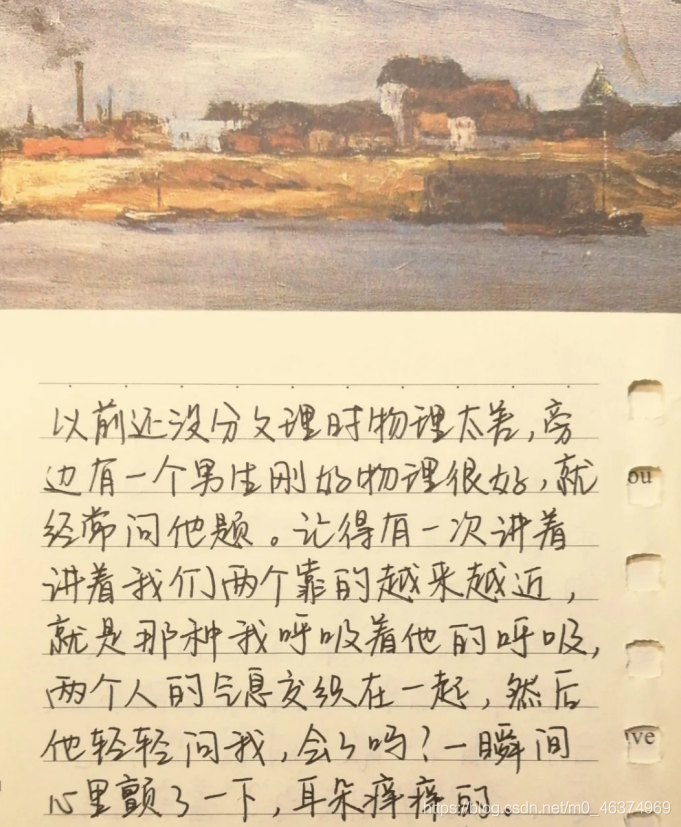 以前还没分文理时物理太差,旁
边有一个男生刚好物理很好,就
经常问他题。记得有一次讲着
讲着我们两个靠的越来越近,
就是那种我呼吸着他的呼吸,
两个人的气息交织在一起,然后
他轻轻问我,会了吗?一瞬间
心里颤了一下,耳朵痒痒的
ou
ve
https://blog.csdn.net/m0_46374969